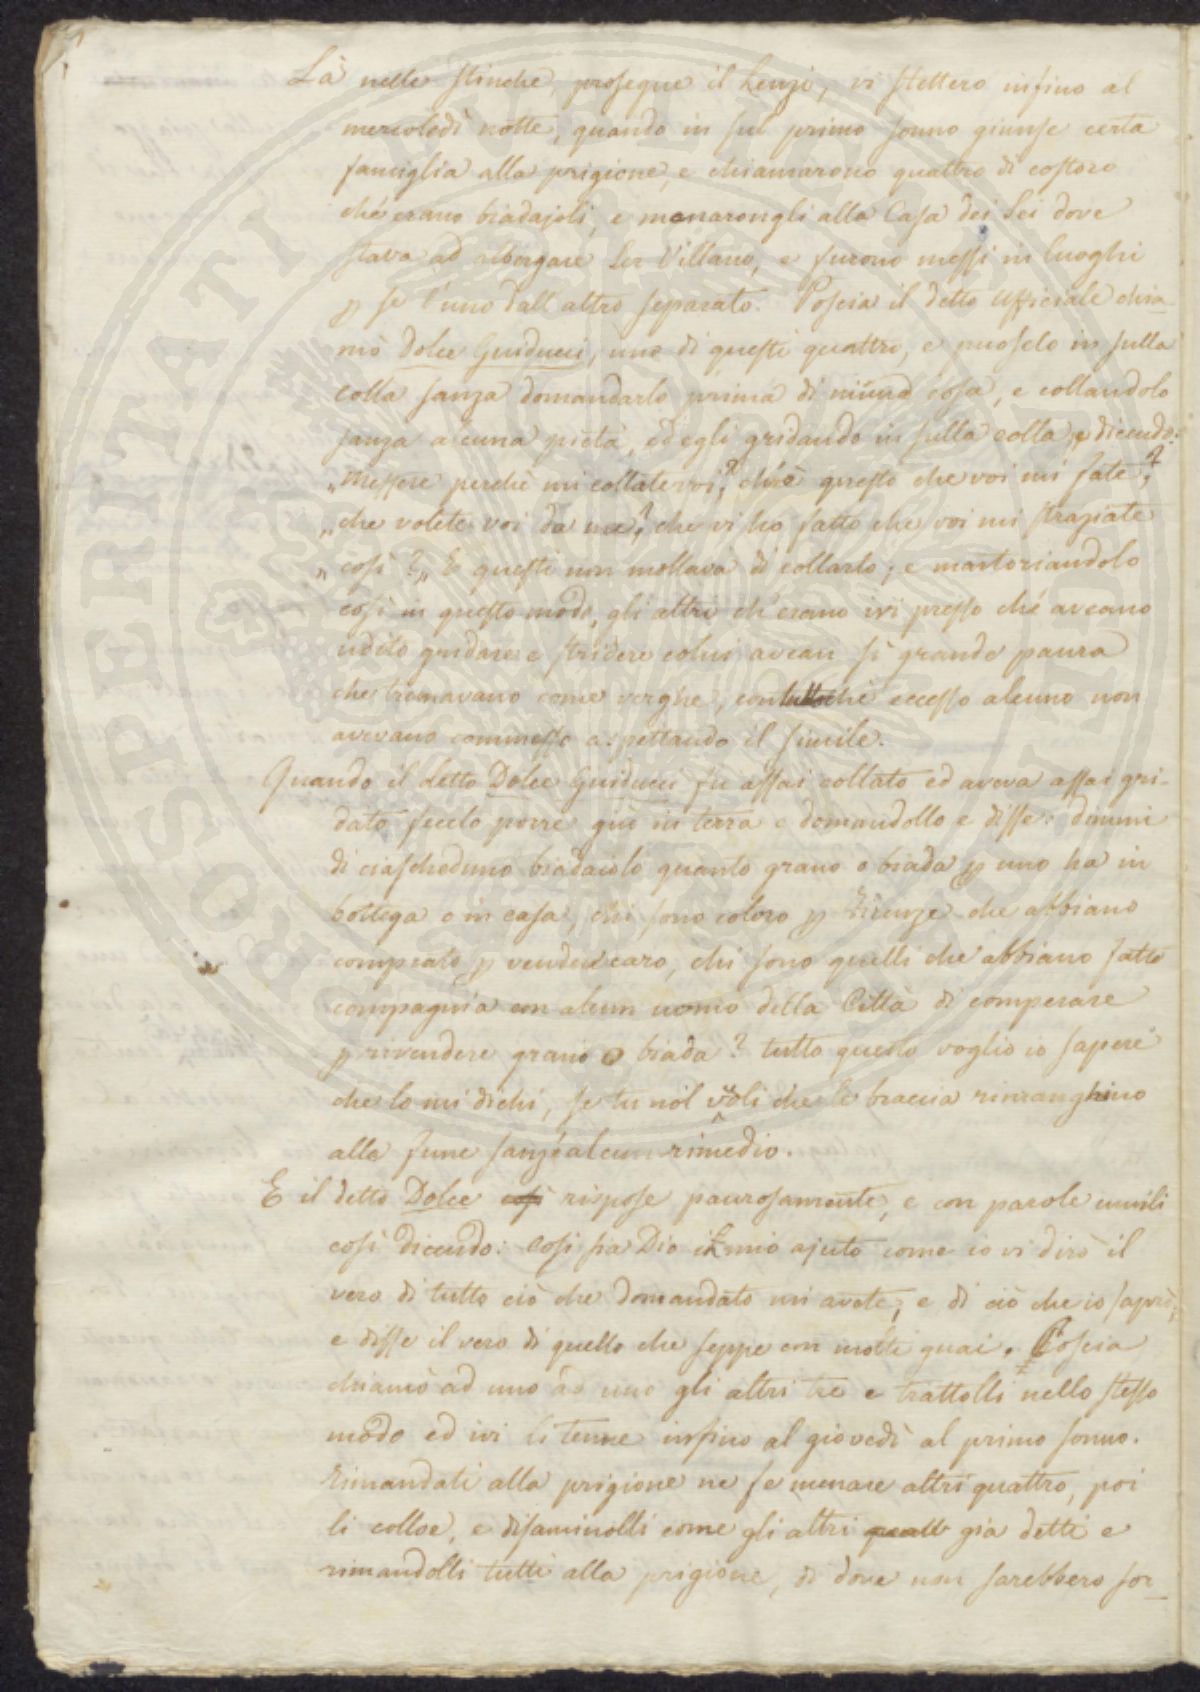 Là nelle Stinche, prosegue il Lenzi, vi stettero infino al
mercoledì notte, quando in sul primo sonno giunse certa
famiglia alla prigione, e chiamarono quattro di costoro
ch'erano biadajoli, e menarongli alla Casa dei Sei dove
stava ad albergare Ser Villano, e furono messi in luoghi
p se l'uno dall'altro separato. Poscia il detto Ufficiale chia-
mò Dolce Guiducci, uno di questi quattro, e puoselo in sulla
colla sanza domandarlo prima di niuna cosa, e collandolo
sanza alcuna pietà, ed egli gridando in sulla colla, e dicendo:
„Messere perchè mi collate voi? ch'è questo che voi mi fate?
„che volete voi da me? che vi ho fatto che voi mi straziate
„così?„ E questi non mollava di collarlo; e martoriandolo
così in questo modo, gli altri ch'erano ivi presso che aveano
udito gridare e stridere colui avean sì grande paura
che tremavano come verghe, contuttochè eccesso alcuno non
avevano commesso aspettando il simile.
Quando il detto Dolce Guiducci fu assai collato ed aveva assai gri-
dato fecelo porre giù in terra e domandollo e disse: dimmi
di ciascheduno biadaiolo quanto grano o biada p uno ha in
bottega o in casa, chi sono coloro p Firenze che abbiano
comprato p vendere caro, chi sono quelli che abbiano fatto
compagnia con alcun uomo della Città di comperare
p rivendere grano o biada? tutto questo voglio io sapere
che lo mi dichi, se tu nol vuoli che le braccia rimanghino
alla fune sanz'alcun rimedio.
E il detto Dolce così rispose paurosamente, e con parole umili
così dicendo: Così sia Dio il mio ajuto come io vi dirò il
vero di tutto ciò che domandato mi avete, e di ciò che io saprò;
e disse il vero di quello che seppe con molti guai. Poscia
chiamò ad uno ad uno gli altri tre e trattolli nello stesso
modo ed ivi li tenne infino al giovedì al primo sonno.
Rimandati alla prigione ne fe menare altri quattro, poi
li colloe, e disaminolli come gli altri quatt già detti e
rimandolli tutti alla prigione, di dove non sarebbero sor-
PROSPERITATI PUBLICAE